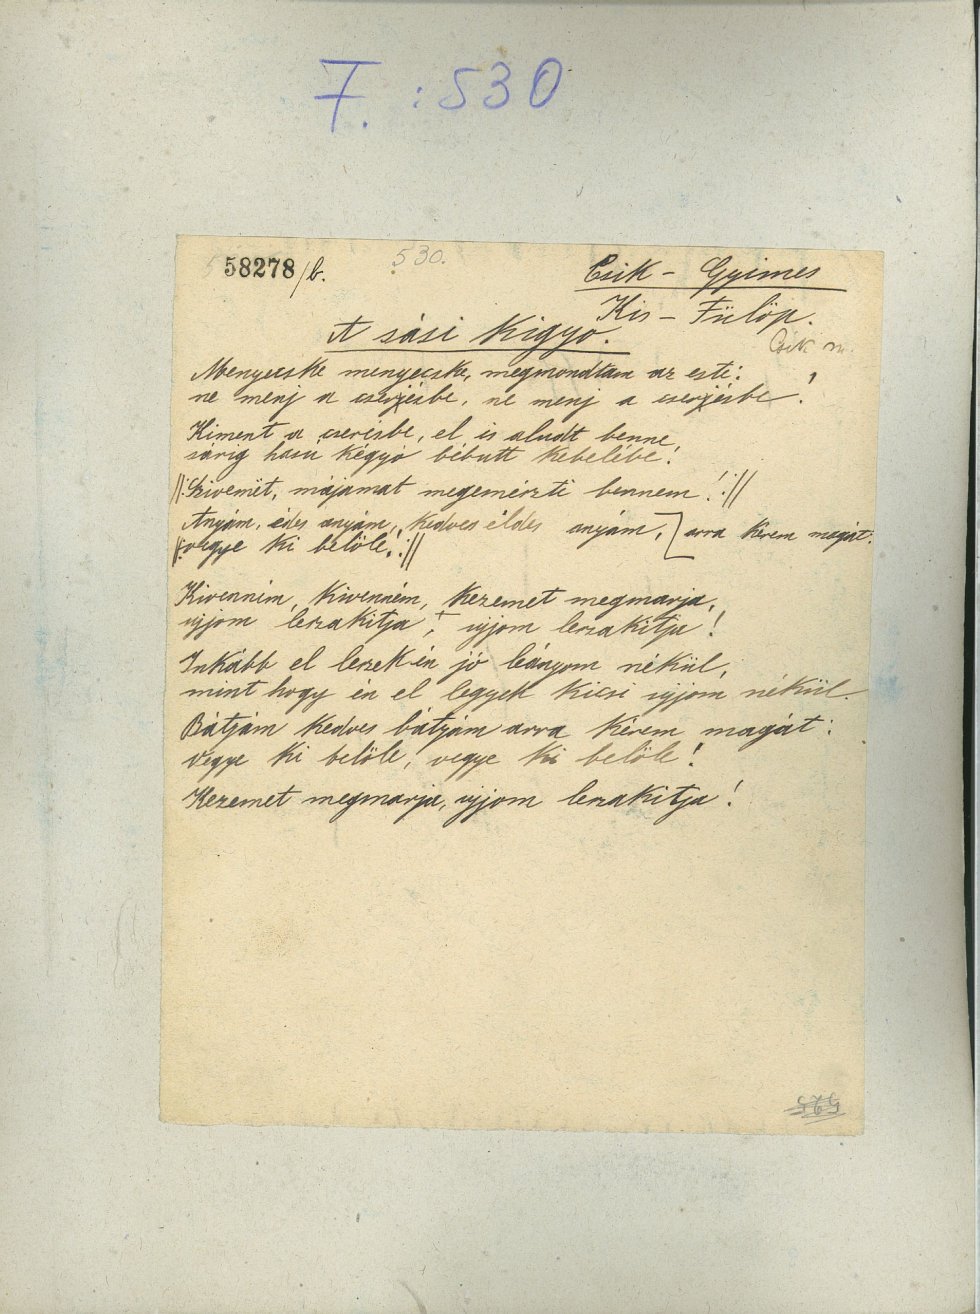 F. : 530
58278/b.
530.
Csik - Gyimes
Kis - Fülöp.
Csik m.
A sási kigyo.
Menyecske menyecske, megmondtam az esti:
ne menj a cserjésbe, ne menj a cserjésbe!
Kiment a cserésbe, el is aludt benne,
sárig hasú kégyó bébutt kebelébe!
||:Szivemët, májamat megemészti bennem!:||
Anyám, édes anyám, kedves éldes anyám,] arra kérem magát:
||:vegye ki belőle!:||
Kivenném, kivenném, kezemet megmarja,
ujjom leszakitja, ujjom leszakitja!
Inkább el leszek én jó leányom nékül,
mint hogy én el legyek kicsi ujjom nékül.
Bátjám kedves bátyám arra kérem magát:
Vegye ki belőle, vegye ki belőle!
Kezemet megmarja, ujjom leszakitja!